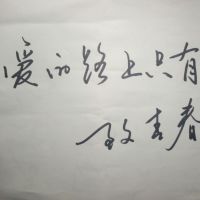 爱的路上只有
致青春